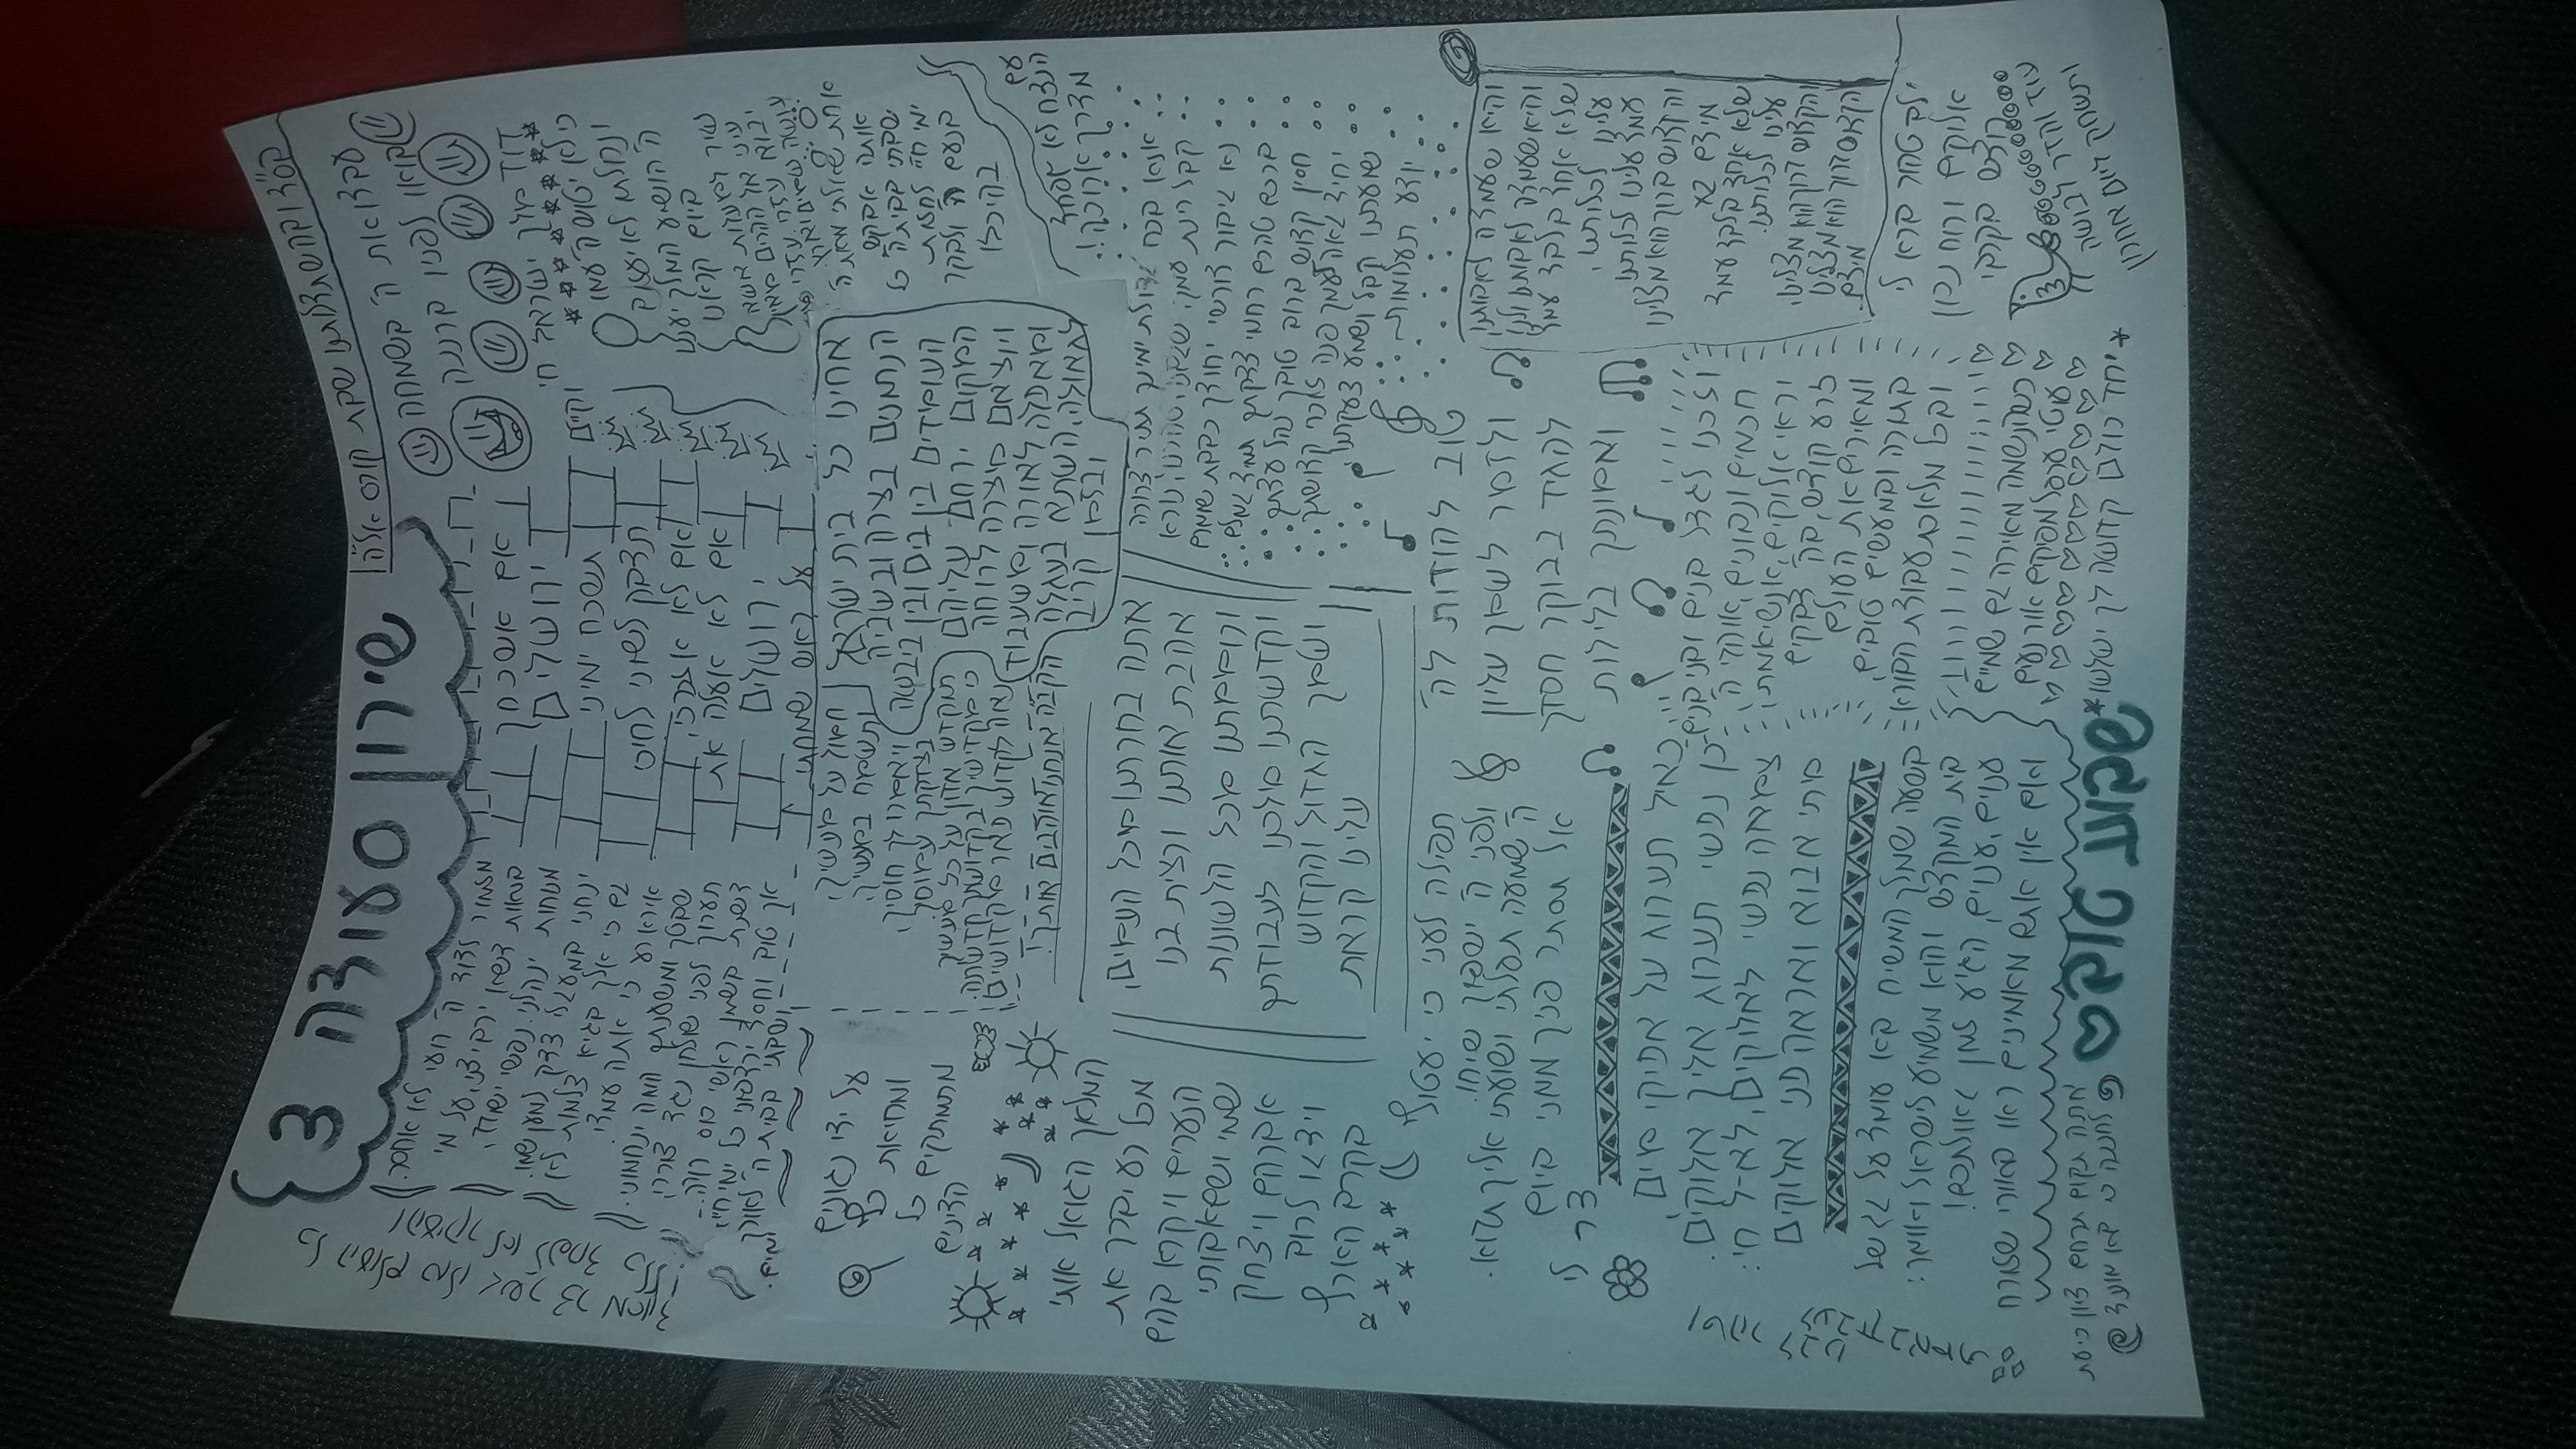 בס"ד ובהשתדלותנו שבת קורס אלה!
שירון סעודה 3
עבדו את ה' בשמחה
בואו לפניו ברננה
דוד מלך ישראל חי
וקיים
כי לא יטוש ה' עמו
ונחלתו לא יעזוב
ה' הושיעה המלך יעננו
ביום קראנו
שיר למעלות אשא
עיני אל ההרים מאין
יבוא עזרי. עזרי מעם
עושה שמים וארץ
אחת שאלתי מאת ה'
אותה אבקש
שבתי בבית ה' כל
ימי חיי לחזות
בנעם ה' ולבקר
בהיכלו
אם אשכחך
ירושלים
תשכח ימיני
תדבק לשוני לחיכי
אם לא אזכרכי,
אם לא אעלה את
ירושלים
על ראש שמחתי
מזמור לדוד ה' רועי לא אחסר.
בנאות דשא ירביצני, על מי
מנוחות ינהלני. נפשי ישובב,
ינחני במעגלי צדק למען שמו.
גם כי אלך בגיא צלמות לא
אירא רע כי אתה עמדי.
שבטך ומשענתך המה ינחמוני.
תערוך לפני שולחן נגד צוררי,
דשנת בשמן ראשי כוס רויה.
אך טוב וחסד ירדפוני כל ימי חיי,
ושבתי בבית ה' לאורך
ימים.
כל העולם כולו גשר צר מאוד
והעיקר לא לפחד כלל!!
אחינו כל בית ישראל
הנתונים בצרה ובשביה
העומדים בין בים ובין ביבשה
המקום ירחם עליהם
ויוציאם מצרה לרוחה
ומאפלה לאורה ומשעבוד
לגאולה, השתא בעגלה
ובזמן קריב
חמול על מעשיך,
ותשמח במעשיך,
ויאמרו לך חוסיך,
בצדקתך עמוסיך.
תוקדש אדון על כל מעשיך
כי מקדישיך בקדושתך קדשתה.
נאה לקדוש פאר מקדושים
הקב"ה אנחנו אוהבים אותך!
על ידי נגונים
ומחיאת כף
מתמתקים כל
הדינים
עם
הנצח לא מפחד
מדרך ארוכה!
המלאך הגואל אותי
מכל רע יברך את
הנערים ויקרא בהם
שמי ושם אבותי
אברהם ויצחק
וידגו לרוב
בקרב הארץ
אתה בחרתנו מכל העמים,
אהבת אותנו ורצית בנו
ורוממתנו מכל הלשונות
וקדשתנו מלכנו לעבודתך
ושמך הגדול והקדוש
עלינו קראת
אנא בכח גדולת ימינך תתיר צרורה
קבל רינת עמך, שגבנו, טהרנו, נורא
נא גיבור דורשי יחודך כבבת שומרם
ברכם טהרם רחמי צדקתך תמיד גמלם
חסין קדוש ברוב טובך נהל עדתך
יחיד גאה לעמך פנה זוכרי קדושתך
שועתנו קבל ושמע צעקתנו
יודע תעלומות
טוב להודות לה'
ולזמר לשמך עליון
להגיד בבוקר חסדך
ואמונתך בלילות
תפילה לעני כי יעטוף
ולפני ה' ישפוך שיחו.
ה' שמעה תפלתי ושועתי אליך תבוא.
אל תסתר פניך ממני ביום
צר לי
והיא שעמדה לאבותינו,
והיא שעמדה לאבותינו ולנו
שלא אחד בלבד עמד
עלינו לכלותנו,
עמד עלינו לכלותנו
והקדוש ברוך הוא מצילנו
מידם
שלא אחד בלבד עמד
עלינו לכלותנו.
והקדוש ברוך הוא מצילנו,
הקדוש ברוך הוא מצילנו
מידם.
כאיל תערוג על אפיקי מים,
כן נפשי תערוג אליך אלוקים.
צמאה נפשי לאלוקים, לא-ל חי:
מתי אבוא ואראה פני אלוקים
וזכנו לגדל בנים ובני בנים
חכמים ונבונים, אוהבי ה'
יראי אלוקים, אנשי אמת,
זרע קודש, בה' דבקים
ומאירים את העולם
בתורה ובמעשים טובים,
ובכל מלאכת עבודת הבורא
בשעה שמלך המשיח בא עומד על גג של
בית המקדש והוא משמיע לישראל ואומר:
ענוים, ענוים, הגיע זמן גאולתכם!
ואם אין אתם מאמינים ראו באורי שזורח
וטהר לבנו לעבדך באמת
לב טהור ברא לי
אלוקים ורוח נכון
חדש בקרבי
כשהנשמה מאירה גם שמיים
עוטי ערפל מפיקים אור נעים
עוז והדר לבושה
ותשחק ליום אחרון
*יחד כולם קדושה לך ישלשו*
שבוע טוב
אתה תקום תרחם ציון כי עת
לחננה כי בא מועד